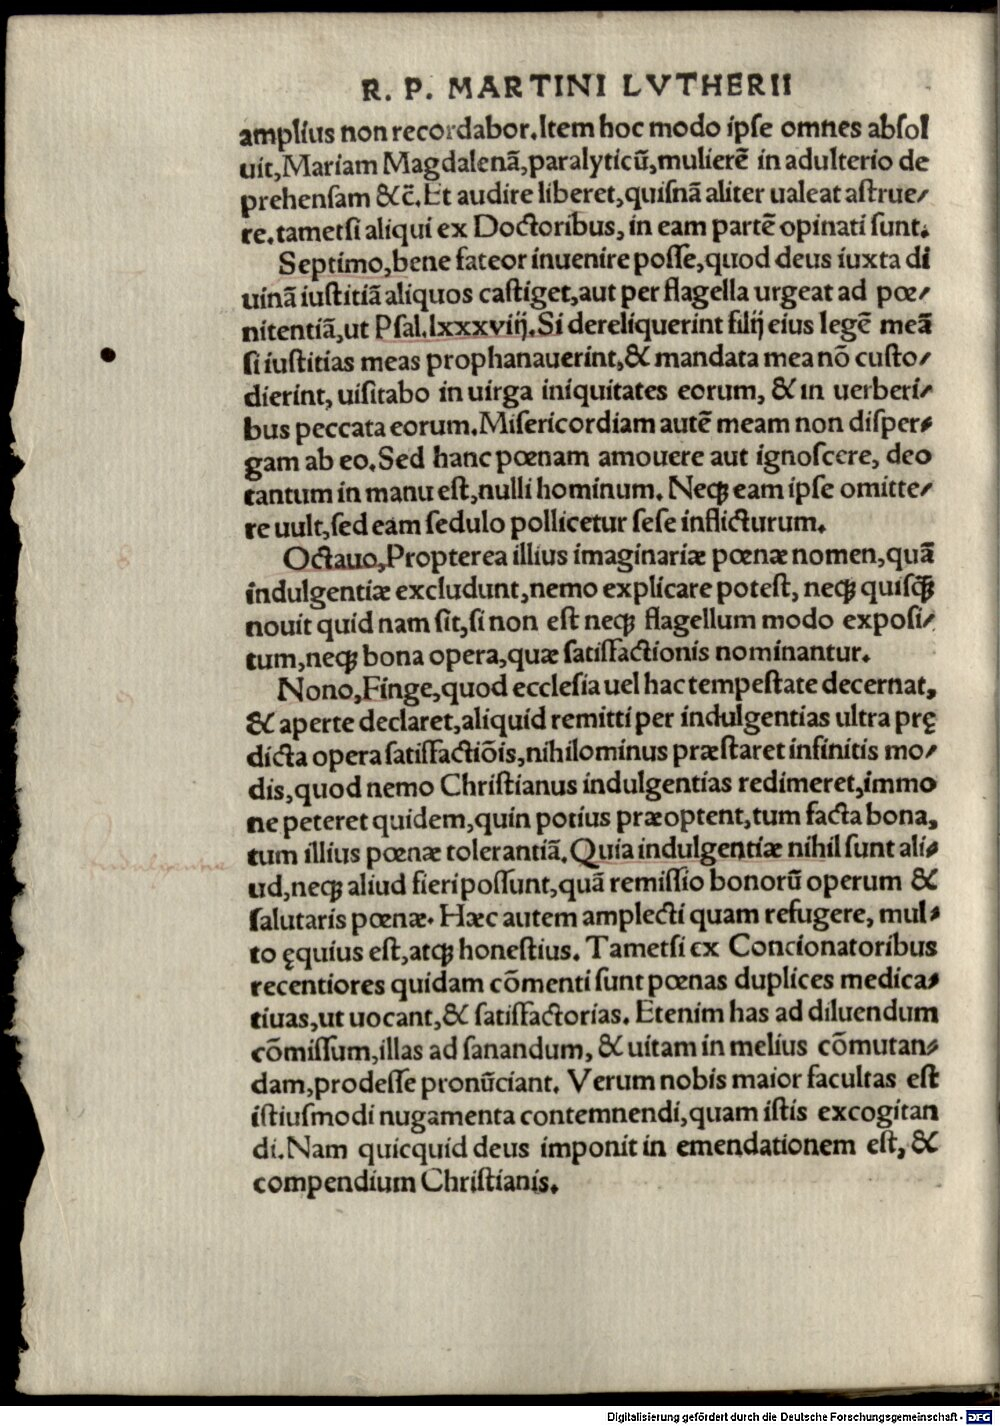 R. P. MARTINI LVTHERII
amplius non recordabor. Item hoc modo ipſe omnes abſol
uit, Mariam Magdalenã, paralyticũ, mulierẽ in adulterio de
prehenſam &c̃. Et audire liberet, quiſnã aliter ualeat aſtrue/
re. tametſi aliqui ex Doctoribus, in eam partẽ opinati ſunt.
Septimo, bene fateor inuenire poſſe, quod deus iuxta di
uinã iuſtitiã aliquos caſtiget, aut per flagella urgeat ad pœ/
nitentiã, ut Pſal. lxxxviiĳ. Si dereliquerint filĳ eius legẽ meã
ſi iuſtitias meas prophanauerint, & mandata mea nõ cuſto/
dierint, uiſitabo in uirga iniquitates eorum, & in uerberi/
bus peccata eorum. Miſericordiam autẽ meam non diſper/
gam ab eo. Sed hanc pœnam amouere aut ignoſcere, deo
tantum in manu eſt, nulli hominum. Neqꝫ eam ipſe omitte/
re uult, ſed eam ſedulo pollicetur ſeſe inflicturum.
8
Octauo, Propterea illius imaginariæ pœnæ nomen, quã
indulgentiæ excludunt, nemo explicare poteſt, neqꝫ quiſq̃ꝫ
nouit quid nam ſit, ſi non eſt neqꝫ flagellum modo expoſi/
tum, neqꝫ bona opera, quæ ſatiſfactionis nominantur.
9
Nono, Finge, quod eccleſia uel hac tempeſtate decernat,
& aperte declaret, aliquid remitti per indulgentias ultra prę
dicta opera ſatiſfactiõis, nihilominus præſtaret infinitis mo/
dis, quod nemo Chriſtianus indulgentias redimeret, immo
ne peteret quidem, quin potius præoptent, tum facta bona,
tum illius pœnæ tolerantiã. Quia indulgentiæ nihil ſunt ali/
Indulgentiae
ud, neqꝫ aliud fieri poſſunt, quã remiſſio bonorũ operum &
ſalutaris pœnæ. Hæc autem amplecti quam refugere, mul/
to ęquius eſt, atqꝫ honeſtius. Tametſi ex Concionatoribus
recentiores quidam cõmenti ſunt pœnas duplices medica/
tiuas, ut uocant, & ſatiſfactorias. Etenim has ad diluendum
cõmiſſum, illas ad ſanandum, & uitam in melius cõmutan/
dam, prodeſſe pronũciant. Verum nobis maior facultas eſt
iſtiuſmodi nugamenta contemnendi, quam iſtis excogitan
di. Nam quicquid deus imponit in emendationem eſt, &
compendium Chriſtianis.
Digitalisierung gefördert durch die Deutsche Forschungsgemeinschaft - DFG